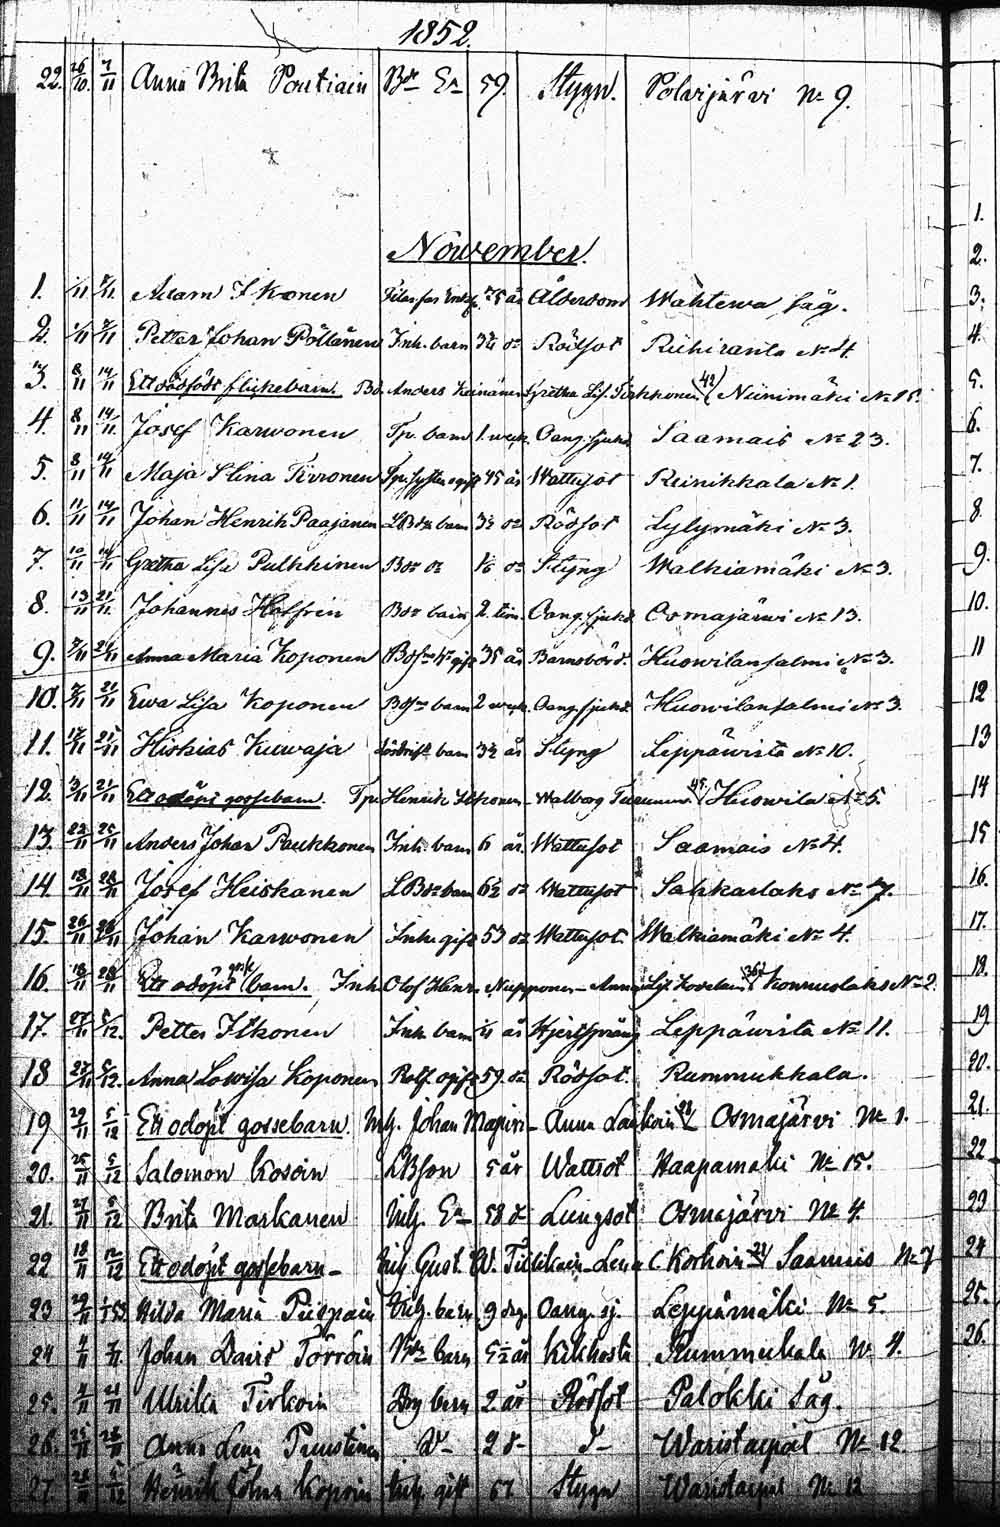 1852.
22. 26/10 7/11 Anna Brita Pontiain Bdr Ea 59. Stygn. Polvijärvi No 9.
November.
1. 1/11 7/11 Adam Ikonen 75 år Ålderdom Wahtewa såg.
2. Petter Johan Pöllänen Inh. barn 3/4 do Rödsot Riihiranta No 4.
3. 8/11 14/11 Ett dödfödt flickebarn. Bd. Anders Keinänen Gretha Lis. 42 Niinimäki No 15.
4. 8/11 14/11 Josef Karwonen Tp. barn 1. week. Oang. sjukd. Saamais No 23.
5. 8/11 14/11 Maja Stina Tirronen 45 år Wattusot Reinikkala No 1.
6. 11/11 14/11 Johan Henrik Paajanen LBdr barn 3½ do Rödsot Lylymäki No 3.
7. 10/11 14/11 Gretha Lisa Pulkkinen Bdr do 1/6 do Styng Walkiamäki No 3.
8. 13/11 21/11 Johannes Hoffrén Bdr barn 2 tim. Oang. sjukd. Osmajärwi No 13.
9. 7/11 21/11 Anna Maria Koponen gift 35 år Barnsbörd. Huowilansalmi No 3.
10. 7/11 21/11 Ewa Lisa Koponen barn 2 week. Oang. sjukd. Huowilansalmi No 3.
11. Hiskias Kuwaja barn 3½ år Styng Leppäwirta No 10.
12. 3/11 21/11 Ett odöpt gossebarn. Tp. Henrik Itkonen - Walborg Turunen 45. Huowila No 5.
13. 22/11 25/11 Anders Johan Paukkonen Inh. barn 6 år. Wattusot Saamais No 4.
14 18/11 28/11 Josef Heiskanen LBdr barn 6½ do Wattusot Sahkarlaks No 7.
15. 26/11 28/11 Johan Karwonen Inh. gift 53 do Wattusot. Walkiamäki No 4.
16. 18/11 28/11 Ett odöpt gosse barn. Inh. Olof Henr. Nupponen - Anna Lis. 36 Konnuslaks No 2.
17. 27/11 5/12. Petter Itkonen Inh. barn 1/4 år Hjertsprång Leppäwirta No 11.
18 27/11 5/12. Anna Lowisa Koponen ogift 59. do Rödsot. Rummukkala.
19 29/11 5/12 Ett odöpt gossebarn. Inh. Johan Majuri - Anna Laukain 22 Osmajärvi No 1.
20. 25/11 5/12 Salomon Kosoin LBson 5 år Wattsot Haapamäki No 15.
21. 27/11 5/12 Brita Markanen Inh. Ea 58 d Lungsot Osmajärvi No 4.
22 18/11 12/12 Ett odöpt gossebarn - Inh Gust. W. Tillikain - Lena C. Korhoin 21 Saamais No 7
23 29/11 Hilda Maria Piispain Inh. barn 9 dag. Oang. sj. Leppämäki No 5.
24 Johan David Törröin Bdr barn 5½ år Kikhosta Rummukala No 4.
25. 21/11 Ulrika Tirkoin barn 2 år Rödsot Palokki Såg.
26. 25/11 28/11 Anna Lena Puustinen D- 2 d- D- Waristaipal No 12
27. Henrik Johan Kopoin Inh. gift 57 Stygn Waristaipal No 12
1.
2.
3.
4.
5.
6.
7.
8.
9.
10.
11
12
13
14
15
16.
17.
18.
19.
20.
21.
22
23
24
25.
26.